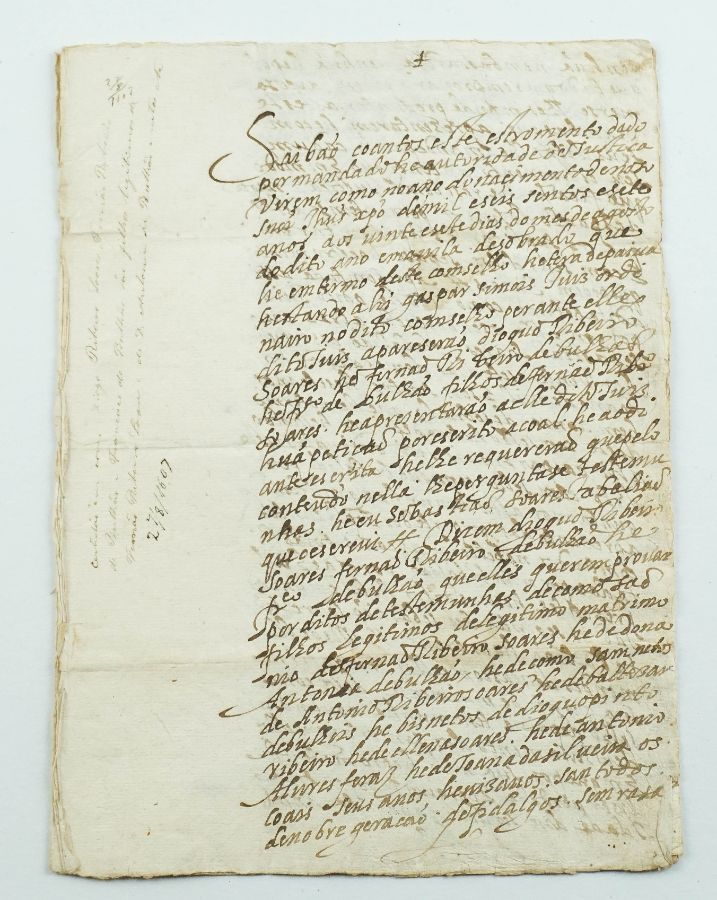 Saibaõ coantos este estromento dado
por mandado he autoridade de Justiça
virem como no ano do nacimento de noso
snõr Jhus xpõ de mil e seis sentos e sete
anos aos vinte e sete dias do mes de agosto
do dito ano em a vila de sobrado que
he em termo deste comselho he tera de paiva
hestando ahi gaspar simois Juis orde
nairo no dito comselho perante elle
dito Juis apareseraõ dioguo Ribeiro
Soares he fernaõ Ribeiro de bulhaõ
he frco de bulhaõ filhos de fernaõ Ribrо
soares he apresentaraõ a elle dito Juis
huã petiçaõ por escrito a coal he ao di
ante escrita he lhe requereraõ que pelo
contendo nella lhe perguntase testemu
nhas he eu Sebastiaõ soares tabaliaõ
que escrevi // Dizem dioguo Ribeiro
Soares fernaõ Ribeiro de bulhaõ he
frco de bulhaõ que elles querem provar
por ditos de testemunhas de como saõ
filhos legitimos de legitimo matrimo
nio de fernaõ Ribeiro soares he de dona
Antonia de bulhaõ, he de como sam netos
de Antonio Ribeiro soares he de baltezar
de bulhois he bisnetos de dioguo pinto
ribeiro he de Ilena soares he de antonio
Alvres feraz he de Joana da silveira os
coais seus avos he vizavos san todos
de nobre geraçaõ de fidalgos sem rasa
27/8/1607